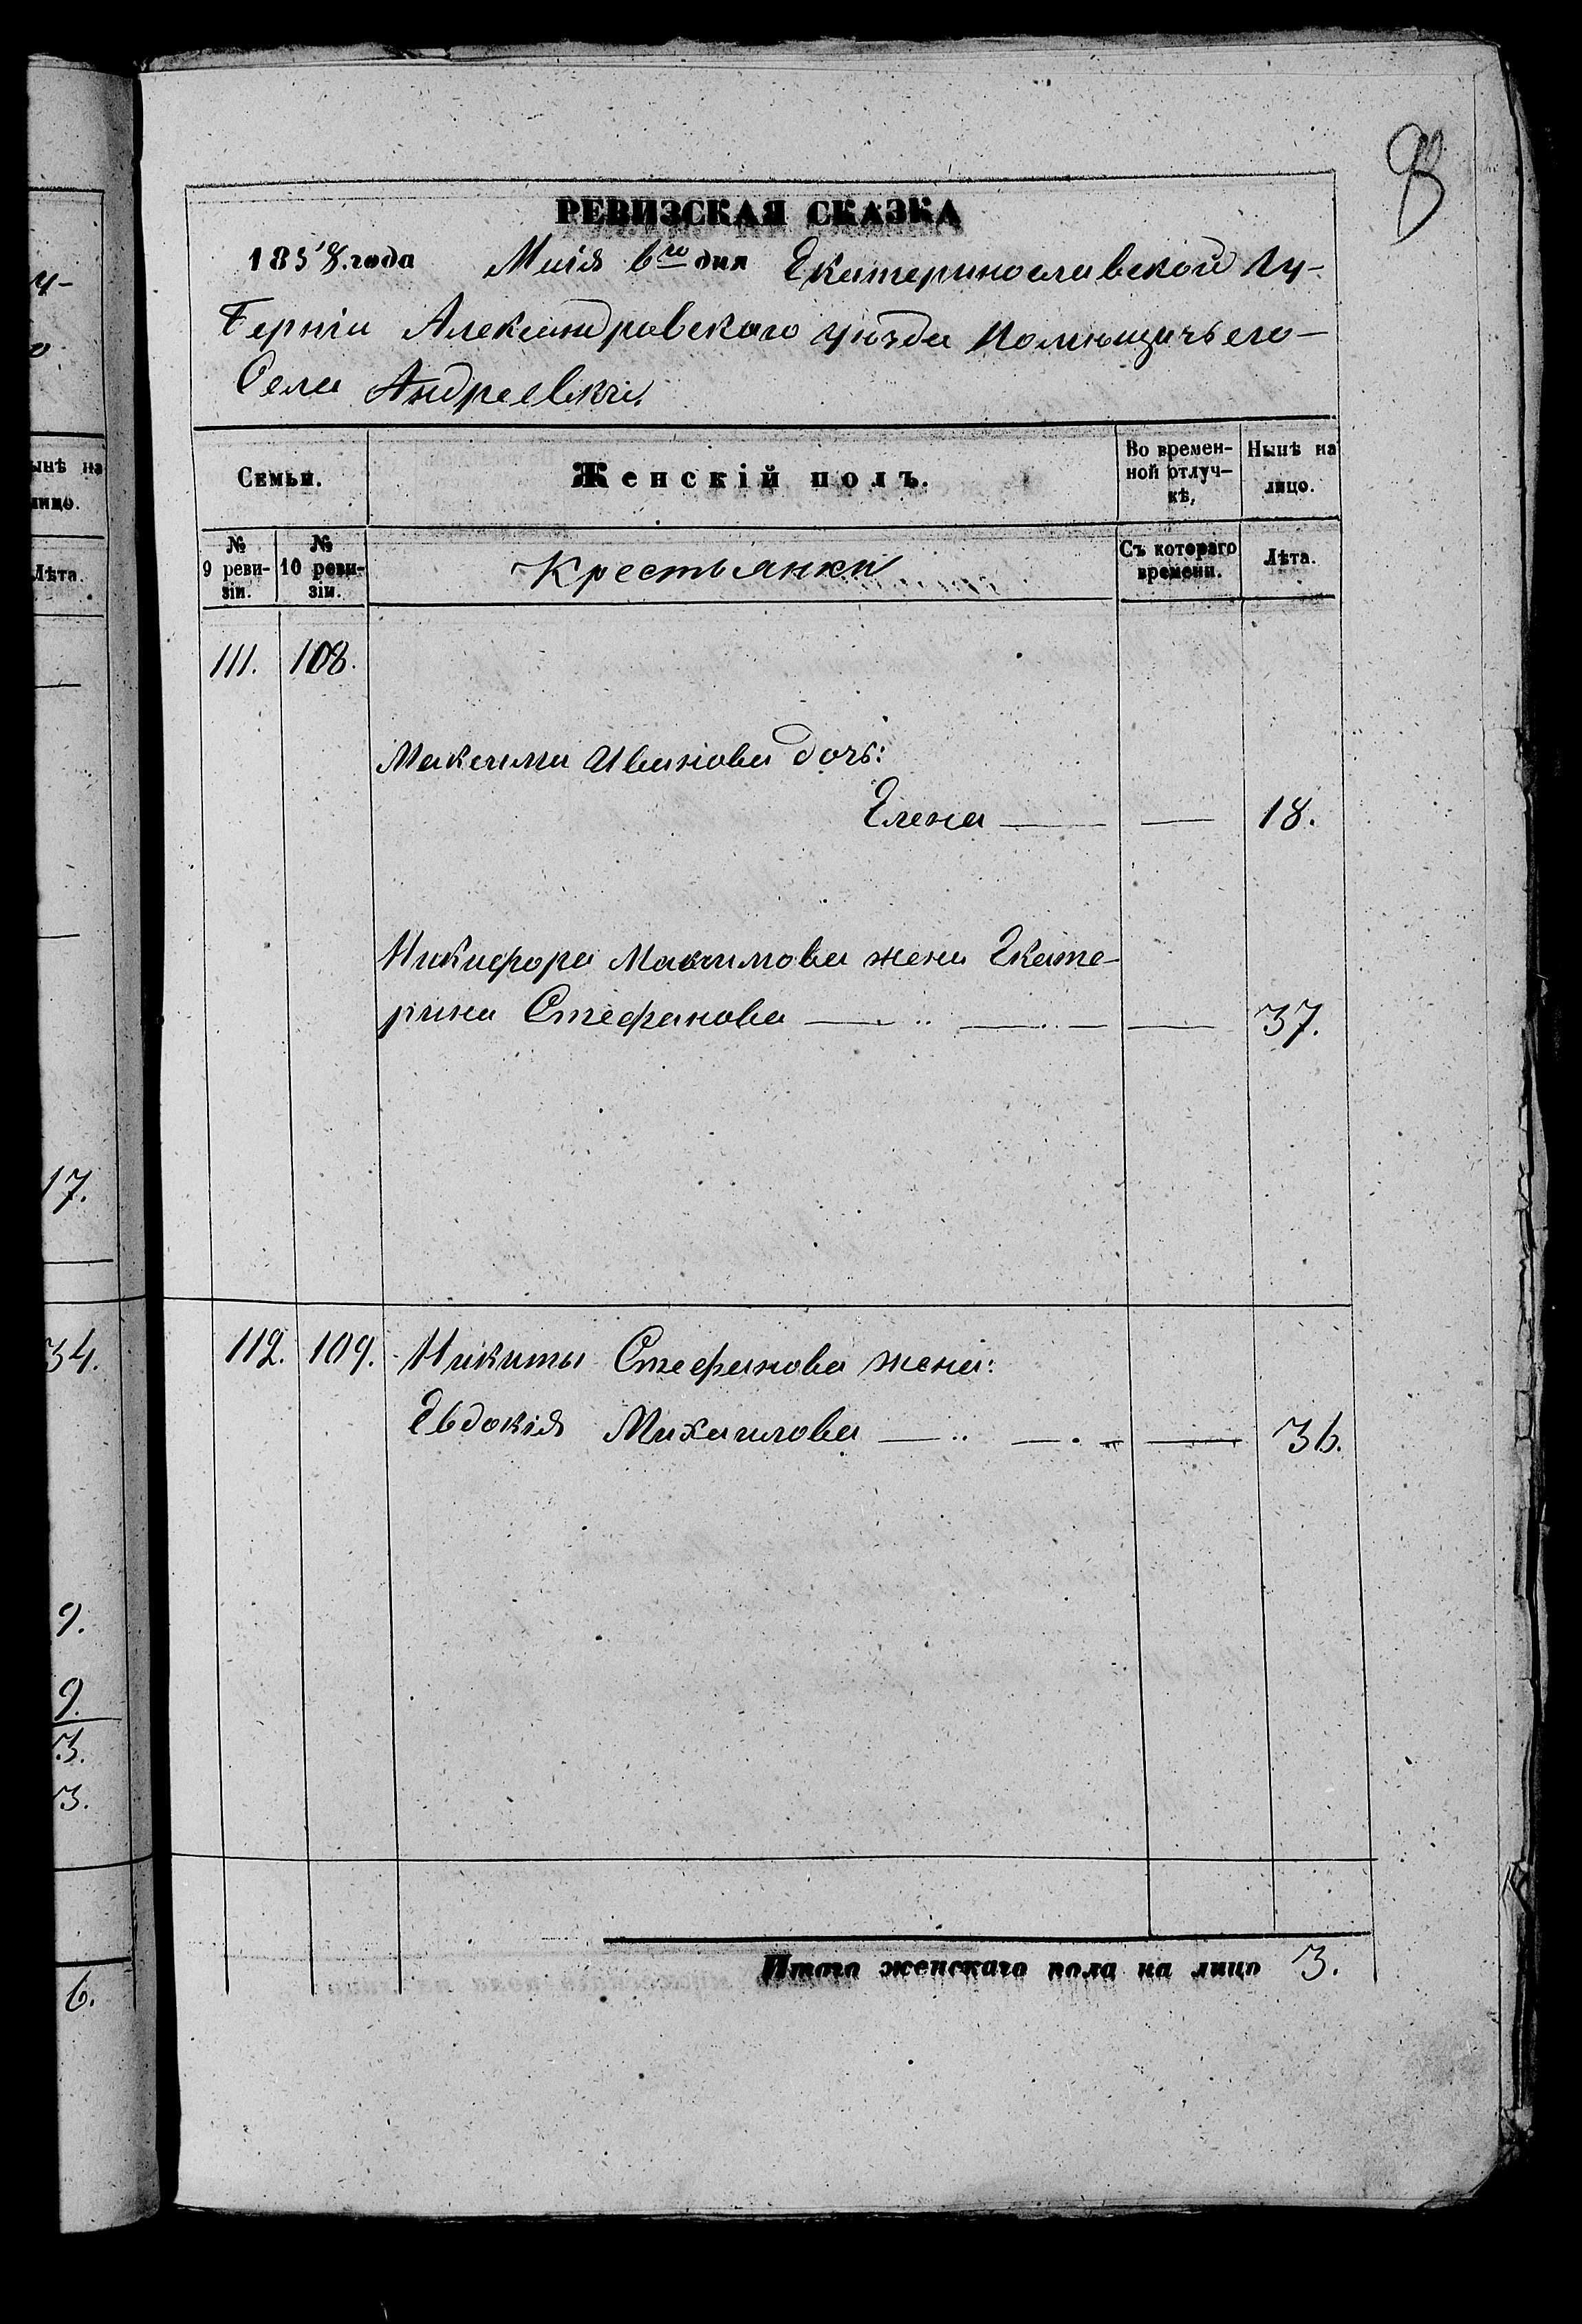 РЕВИЗСКАЯ СКАЗКА
1858. года Маія 6го дня Екатеринославской Гу-
берніи Александровскаго уѣзда помѣщичьего
Села Андреевки.
Семьи.
Женскій полъ.
Во времен-
ной отлуч-
кѣ,
Нынѣ на
лицо.
№
9 реви-
зіи.
№
10 реви-
зіи.
Крестьянки
Съ котораго
времени.
Лѣта.
111. 108.
Максима Иванова дочь:
Елена — — 18.
Никифора Максимова жена Екате-
рина Стефанова — — — 37.
112. 109. Никиты Стефанова жена:
Евдокія Михаилова — — — 36.
Итого женскаго пола на лицо 3.
ынѣ на
лицо.
Лѣта.
17.
34.
9.
9.
3.
3.
6.